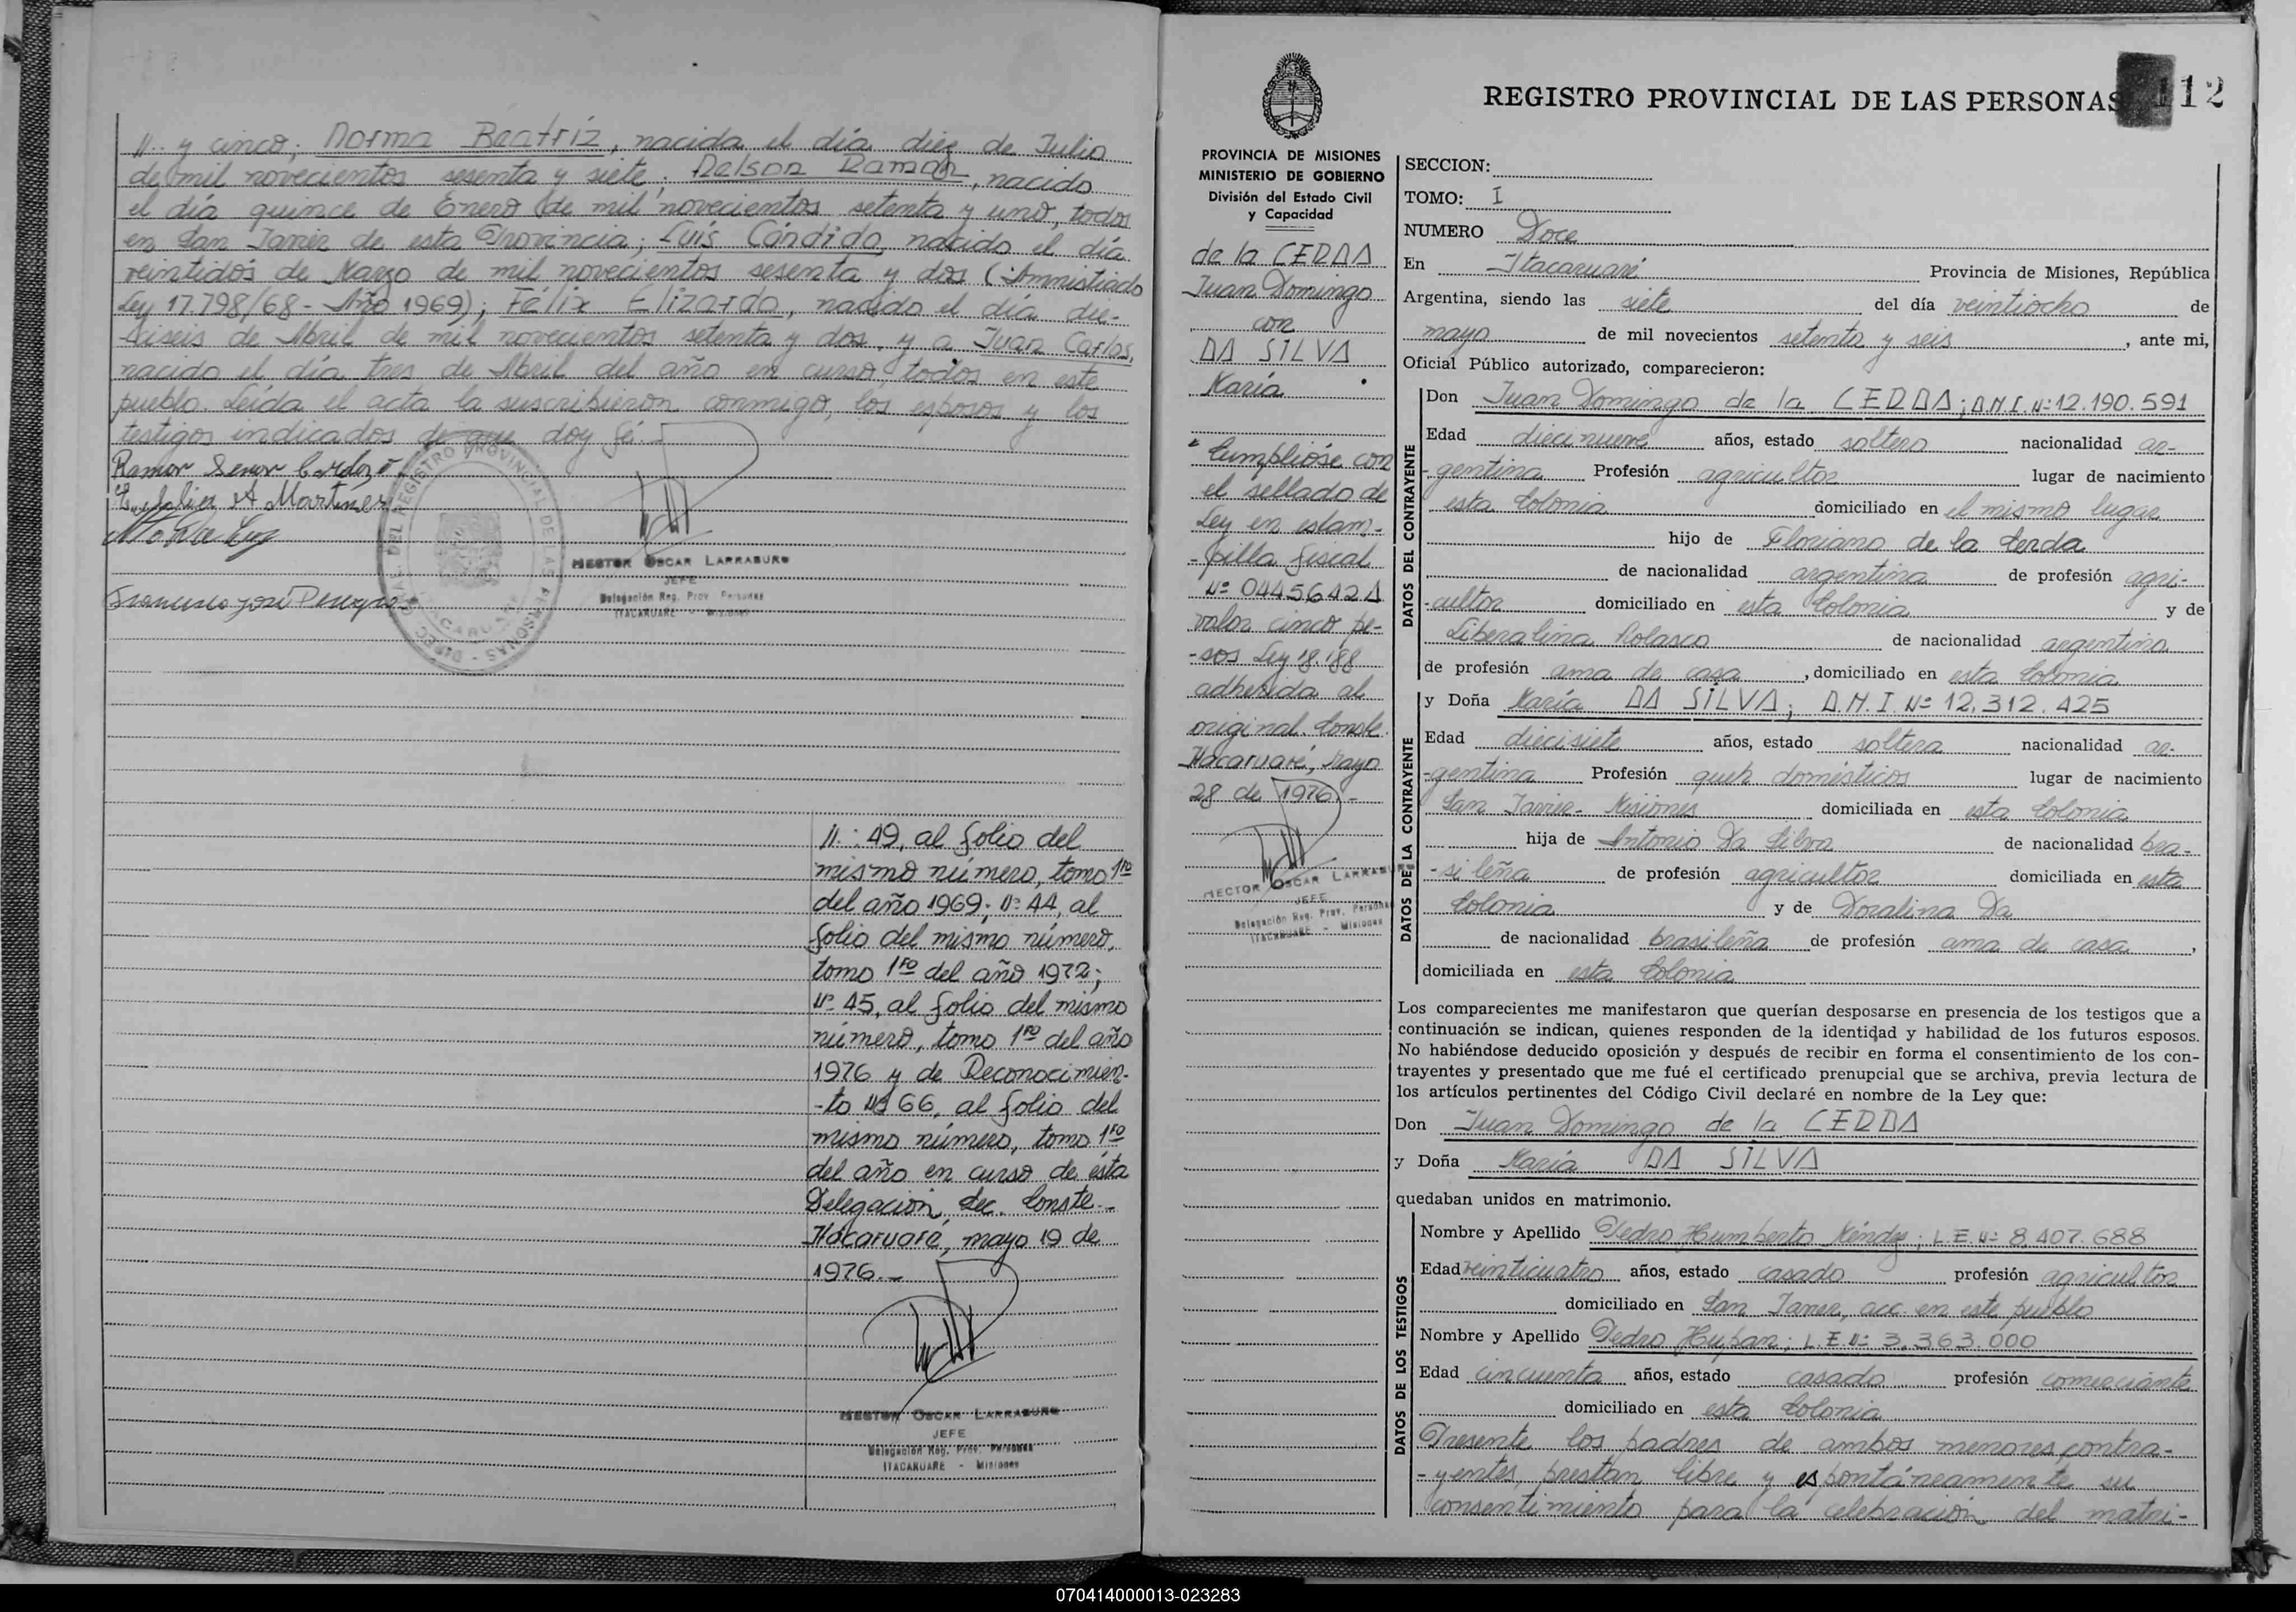 //.. y cinco; Norma Beatríz, nacida el día diez de Julio
de mil novecientos sesenta y siete; Nelson Ramón, nacido
el día quince de Enero de mil novecientos setenta y uno, todos
en San Javier de esta Provincia; Luís Cándido, nacido el día
veintidós de Marzo de mil novecientos sesenta y dos (Amnistiado
Ley 17.798/68 - Año 1969); Félix Elizardo, nacido el día die-
ciseis de Abril de mil novecientos setenta y dos, y a Juan Carlos,
nacido el día tres de Abril del año en curso, todos en este
pueblo. Leída el acta la suscribieron conmigo, los esposos y los
testigos indicados de que doy fé.-
Ramon Senor Cardozo
Eulalia A Martinez
Francisco José
DEL REGISTRO PROVINCIAL DE LAS PERSONAS
HECTOR OSCAR LARRABURU
JEFE
Delegación Reg. Prov. Personas
ITACARUARE - Misiones
//.: 49, al folio del
mismo número, tomo 1ro
del año 1969; Nº 44, al
folio del mismo número,
tomo 1ro del año 1972;
Nº 45, al folio del mismo
número, tomo 1ro del año
1976 y de Reconocimien-
-to Nº 66, al folio del
mismo número, tomo 1ro
del año en curso de ésta
Delegación Sec. Conste.-
Itacaruaré, mayo 19 de
1976.-
HECTOR OSCAR LARRABURU
JEFE
Delegación Reg. Prov. Personas
ITACARUARE - Misiones
REGISTRO PROVINCIAL DE LAS PERSONAS
12
PROVINCIA DE MISIONES
MINISTERIO DE GOBIERNO
División del Estado Civil
y Capacidad
de la CERDA
Juan Domingo
con
DA SILVA
María
Cumplióse con
el sellado de
Ley en estam-
-pilla fiscal
Nº 0445642A
valor cinco pe-
-sos Ley 18.188
adherida al
original. Conste.
Itacaruaré, Mayo
28 de 1976.-
HECTOR OSCAR LARRABURU
JEFE
Delegación Reg. Prov. Personas
ITACARUARE - Misiones
SECCION:
TOMO: I
NUMERO Doce
En Itacaruaré Provincia de Misiones, República
Argentina, siendo las siete del día veintiocho de
mayo de mil novecientos setenta y seis, ante mi,
Oficial Público autorizado, comparecieron:
DATOS DEL CONTRAYENTE
Don Juan Domingo de la CERDA; D.N.I. Nº 12.190.591
Edad diecinueve años, estado soltero nacionalidad ar-
-gentina Profesión agricultor lugar de nacimiento
esta Colonia domiciliado en el mismo lugar
hijo de Floriano de la Cerda
de nacionalidad argentina de profesión agri-
-cultor domiciliado en esta Colonia y de
Liberalina Rolasco de nacionalidad argentina
de profesión ama de casa, domiciliado en esta Colonia
DATOS DE LA CONTRAYENTE
y Doña María DA SILVA; D.N.I. Nº 12.312.425
Edad diecisiete años, estado soltera nacionalidad ar-
-gentina Profesión queh. domésticos lugar de nacimiento
San Javier - Misiones domiciliada en esta Colonia
hija de Antonio Da Silva de nacionalidad bra-
-sileña de profesión agricultor domiciliada en esta
Colonia y de Doralina Da
de nacionalidad brasileña de profesión ama de casa,
domiciliada en esta Colonia
Los comparecientes me manifestaron que querían desposarse en presencia de los testigos que a
continuación se indican, quienes responden de la identidad y habilidad de los futuros esposos.
No habiéndose deducido oposición y después de recibir en forma el consentimiento de los con-
trayentes y presentado que me fué el certificado prenupcial que se archiva, previa lectura de
los artículos pertinentes del Código Civil declaré en nombre de la Ley que:
Don Juan Domingo de la CERDA
y Doña María DA SILVA
quedaban unidos en matrimonio.
DATOS DE LOS TESTIGOS
Nombre y Apellido Pedro Humberto Méndez; L.E. Nº 8.407.688
Edad veinticuatro años, estado casado profesión agricultor
domiciliado en San Javier, acc. en este pueblo
Nombre y Apellido Pedro Hupan; L.E. Nº 3.363.000
Edad cincuenta años, estado casado profesión comerciante
domiciliado en esta Colonia
Presente los padres de ambos menores contra-
-yentes, prestan libre y espontáneamente su
consentimiento para la celebración del matri-
070414000013-023283